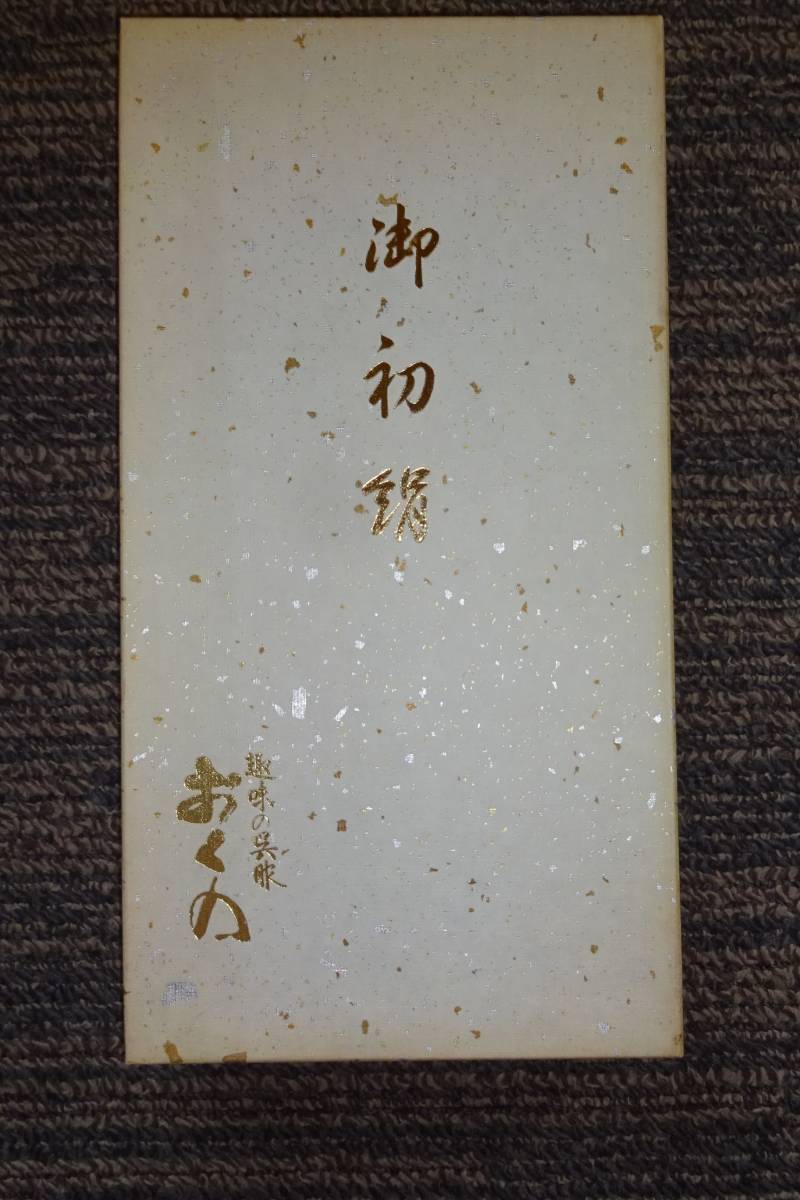 御初絹
趣味の呉服
おくの